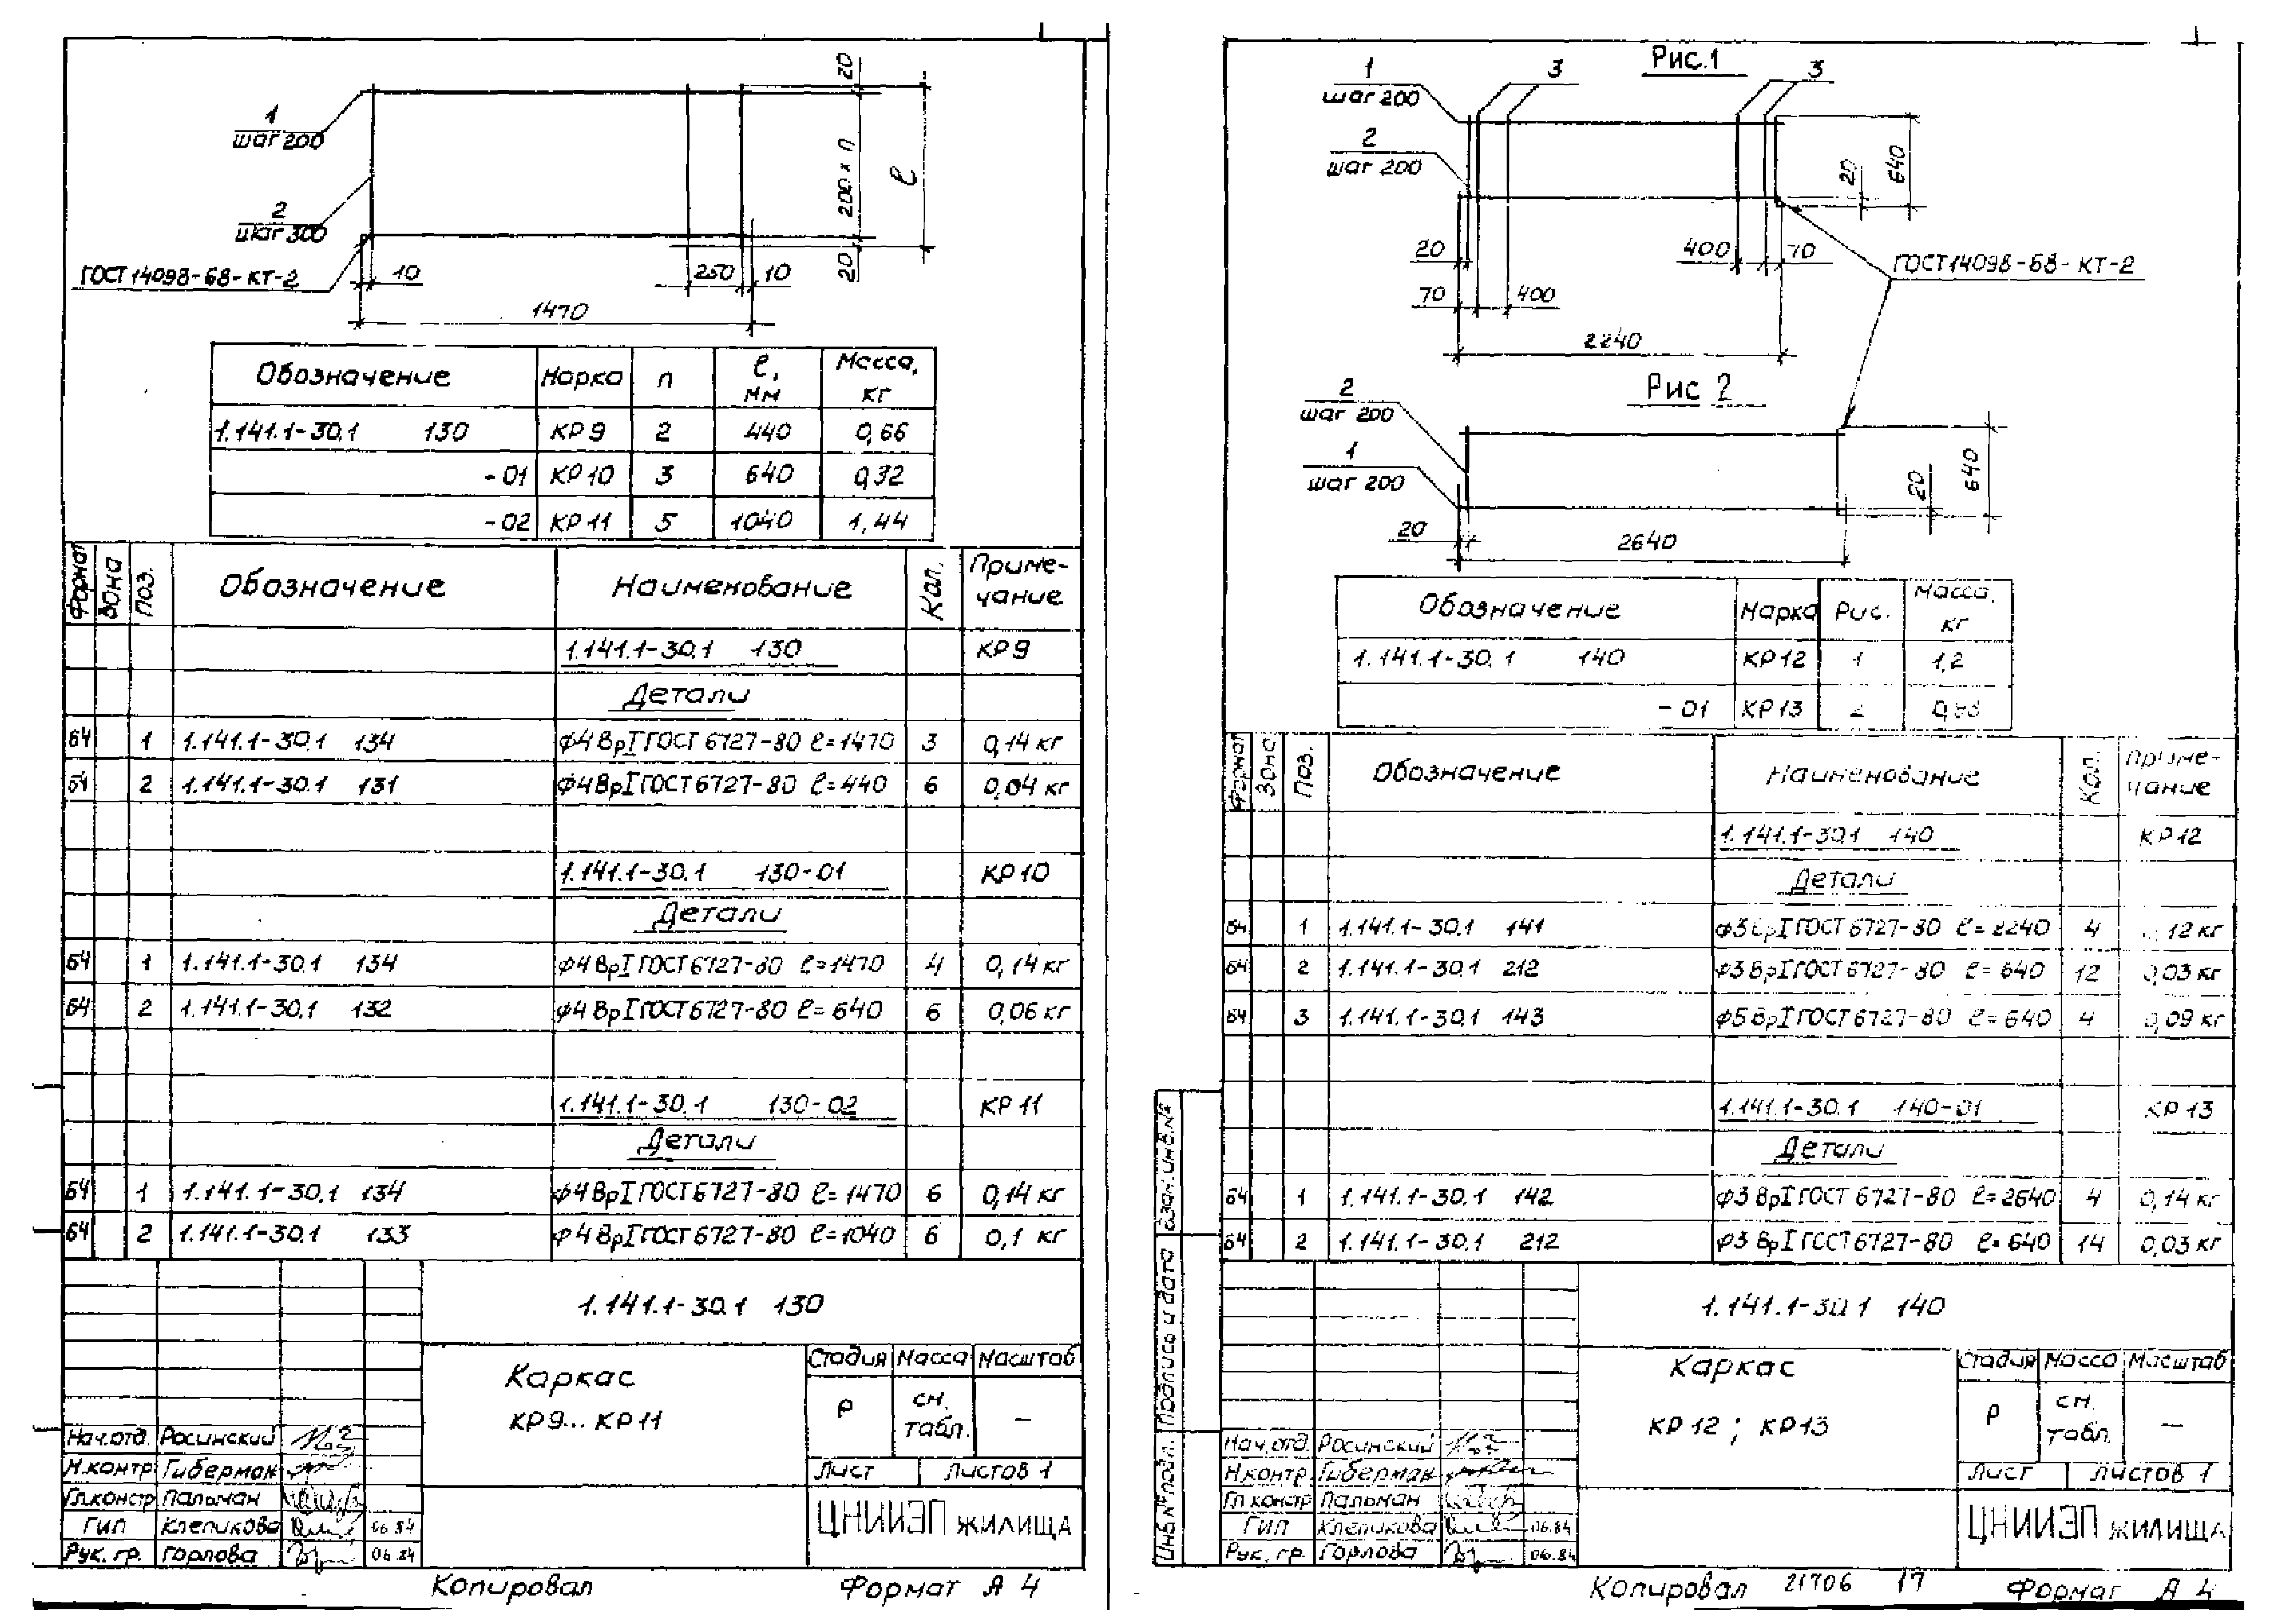 1
шаг 200
2
шаг 300
ГОСТ 14098-68-КТ-2
10
250
10
1470
20
200 × n
20
ℓ
Обозначение Марка n ℓ, мм Масса, кг
1.141.1-30.1 130 КР9 2 440 0,66
-01 КР10 3 640 0,32
-02 КР11 5 1040 1,44
Формат Зона Поз. Обозначение Наименование Кол. Примечание
1.141.1-30.1 130 КР9
Детали
Б4 1 1.141.1-30.1 134 ф4ВрI ГОСТ 6727-80 ℓ=1470 3 0,14 кг
Б4 2 1.141.1-30.1 131 ф4ВрI ГОСТ 6727-80 ℓ=440 6 0,04 кг
1.141.1-30.1 130-01 КР10
Детали
Б4 1 1.141.1-30.1 134 ф4ВрI ГОСТ 6727-80 ℓ=1470 4 0,14 кг
Б4 2 1.141.1-30.1 132 ф4ВрI ГОСТ 6727-80 ℓ=640 6 0,06 кг
1.141.1-30.1 130-02 КР11
Детали
Б4 1 1.141.1-30.1 134 ф4ВрI ГОСТ 6727-80 ℓ=1470 6 0,14 кг
Б4 2 1.141.1-30.1 133 ф4ВрI ГОСТ 6727-80 ℓ=1040 6 0,1 кг
1.141.1-30.1 130
Каркас
КР9... КР11
Стадия Масса Масштаб
Р см. табл. —
Лист Листов 1
ЦНИИЭП жилища
Нач.отд. Росинский
Н.контр Гиберман
Гл.констр Пальман
ГИП Клепикова 06.84
Рук. гр. Горлова 06.84
Копировал Формат А4
Рис.1
1
шаг 200
2
шаг 200
3
3
20
400
70
70
400
2240
20
640
ГОСТ 14098-68-КТ-2
Рис 2
2
шаг 200
1
шаг 200
20
2640
20
640
Обозначение Марка Рис. Масса, кг
1.141.1-30.1 140 КР12 1 1,2
-01 КР13 2
Формат Зона Поз. Обозначение Наименование Кол. Примечание
1.141.1-30.1 140 КР12
Детали
Б4 1 1.141.1-30.1 141 ф3ВрI ГОСТ 6727-80 ℓ=2240 4 0,12 кг
Б4 2 1.141.1-30.1 212 ф3ВрI ГОСТ 6727-80 ℓ=640 12 0,03 кг
Б4 3 1.141.1-30.1 143 ф5ВрI ГОСТ 6727-80 ℓ=640 4 0,09 кг
1.141.1-30.1 140-01 КР13
Детали
Б4 1 1.141.1-30.1 142 ф3ВрI ГОСТ 6727-80 ℓ=2640 4 0,14 кг
Б4 2 1.141.1-30.1 212 ф3ВрI ГОСТ 6727-80 ℓ=640 14 0,03 кг
Инв.№ подл. Подпись и дата Взам.инв.№
1.141.1-30.1 140
Каркас
КР12 ; КР13
Стадия Масса Масштаб
Р см. табл. —
Лист Листов 1
ЦНИИЭП жилища
Нач.отд. Росинский
Н.контр Гиберман
Гл констр Пальман
ГИП Клепикова 06.84
Рук. гр. Горлова 06.84
Копировал 21706 17 Формат А4